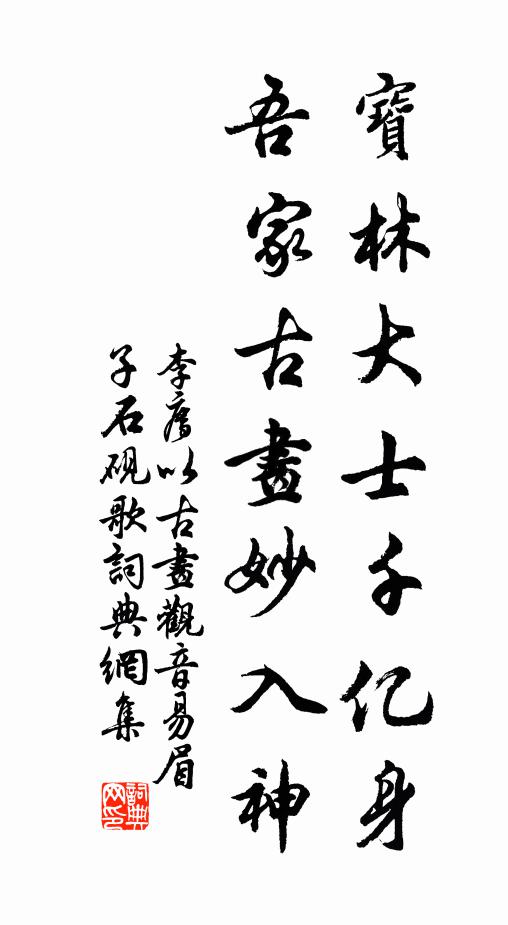 寶林大士千亿身
吾家古畫妙入神
李廌以古畫觀音易眉
子石硯歌詞典網集
詞典
网印